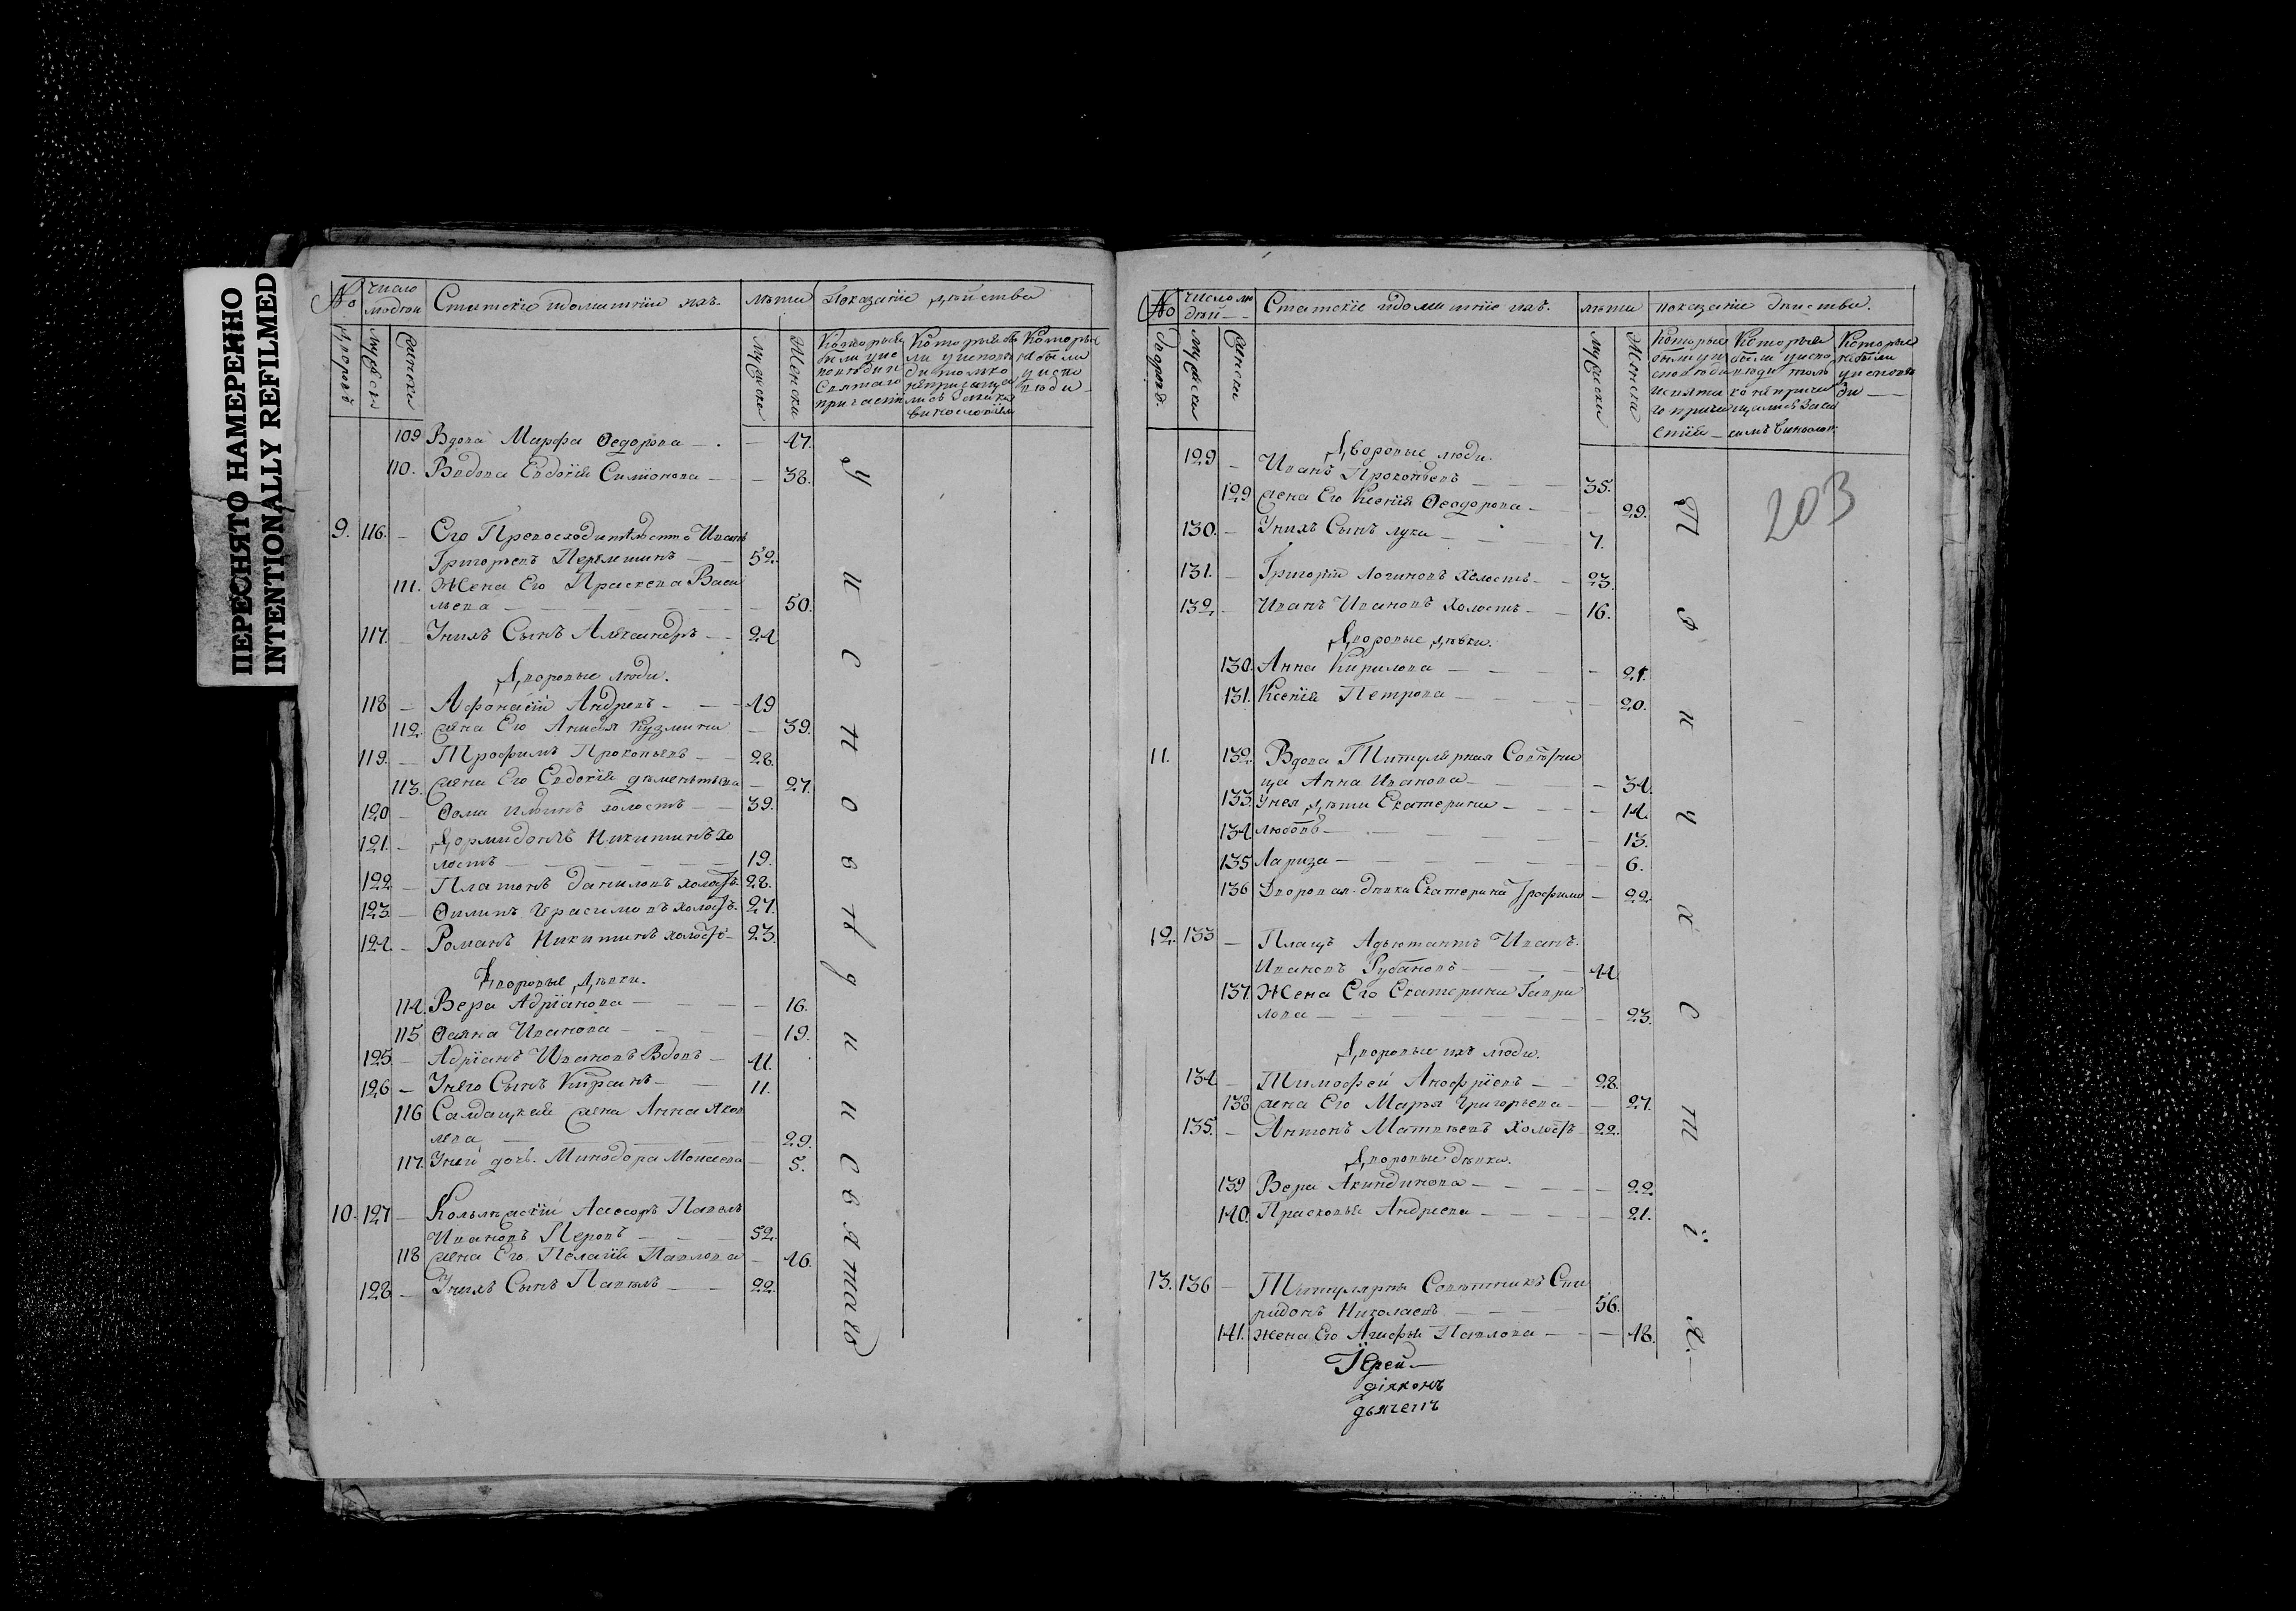 ПЕРЕСНЯТО НАМЕРЕННО
INTENTIONALLY REFILMED
№ Число людей Статские идомашние ихъ. Лѣта Показание действа
дворовъ Мужеска Женски Мужеска Женски
Которые были уисповѣди и Святаго причастия
Которые были уисповѣди только непричащались
Которые небыли уисповѣди
109 Вдова Марфа Ѳедорова — 47.
110. Вдова Евдокия Симионова — 38.
9. 116. Его Превосходителство Иванъ
Григорьевъ Перемешинъ — 52.
111. Жена Его Праскева Васи
льева — 50.
117. Унихъ Сынъ Александръ — 24
Дворовые люди.
118 — Афонасий Андревъ — 49
112. жена Его Анисья Кузмина — 39.
119. — Трофимъ Прокопьевъ — 28.
113. жена Его Евдокия — 27.
120 — Ѳома Ильинъ холостъ — 39.
121. — Дормидонтъ Никитинъ хо
лостъ — 19.
122 — Платонъ Даниловъ холостъ. 28.
123 — Филипъ Герасимовъ холостъ. 27.
124. — Романъ Никитинъ холостъ — 23.
Дворовые Дѣвки.
114. Вера Адрїанова — 16.
115 Ѳаина Иванова — 19.
125 — Адрїанъ Ивановъ Вдовъ — 41.
126 — Унего Сынъ — 11.
116 Салдацкая жена Анна Яков
лева — 29.
117. Уней дочь. Минодора Моисеева — 5.
10. 127 — Колѣжский Асесоръ Павелъ
Ивановъ Перовъ — 52.
118 жена Его Пелагия Павлова — 46.
128 — Унихъ Сынъ Павелъ — 22.
У
исповѣди
и
Святаго
№ Число людей — Статские идомашние ихъ. лѣта показание действа.
Мужеска Женска Мужеска Женска
Которые были уисповѣди исвятаго причастия —
Которые были уисповѣди только непричащались
Которые небыли уисповѣди —
203
Дворовые люди.
129 — Иванъ Прокопьевъ — 35.
129 жена Его Ксения Ѳеодорова — 29.
130. — Унихъ Сынъ лука — 7.
131. — Григорий Логиновъ холостъ — 23.
132. — Иванъ Ивановъ холостъ — 16.
Дворовые дѣвки.
130. Анна Кирилова — 21.
131. Ксения Петрова — 20.
11. 132. Вдова Титулярная Совѣтни
ца Анна Иванова — 34.
133. Унея дѣти Екатерина — 14.
134. любовь — 13.
135 Лариза — 6.
136 Дворовая дѣвка Екатерина Трофимова — 22.
12. 133 — Плацъ Адъютантъ Иванъ.
Ивановъ Рубановъ — 44.
137. Жена Его Екатерина Гаври
лова — 23.
Дворовые ихъ люди.
134 — Тимофей Анофрїевъ — 28.
138 жена Его Марья Григорьева — 27.
135. — Антонъ Матвѣевъ холостъ — 22.
Дворовые дѣвки.
139 Вера Акиндинова — 22
140. Прасковья Андреева — 21.
13. 136 — Титулярны Совѣтникъ Спи
ридонъ Николаевъ — 56.
141. жена Его Агафья Павлова — 48.
П р и ч а с т ї я.
Їерей —
дїяконъ
дьячекъ